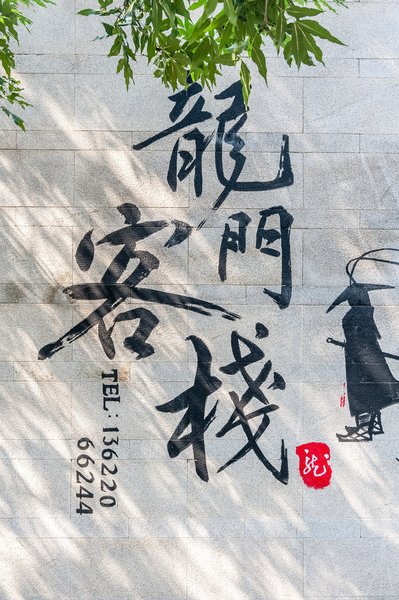 龍門客栈
TEL: 136220
66244
龙